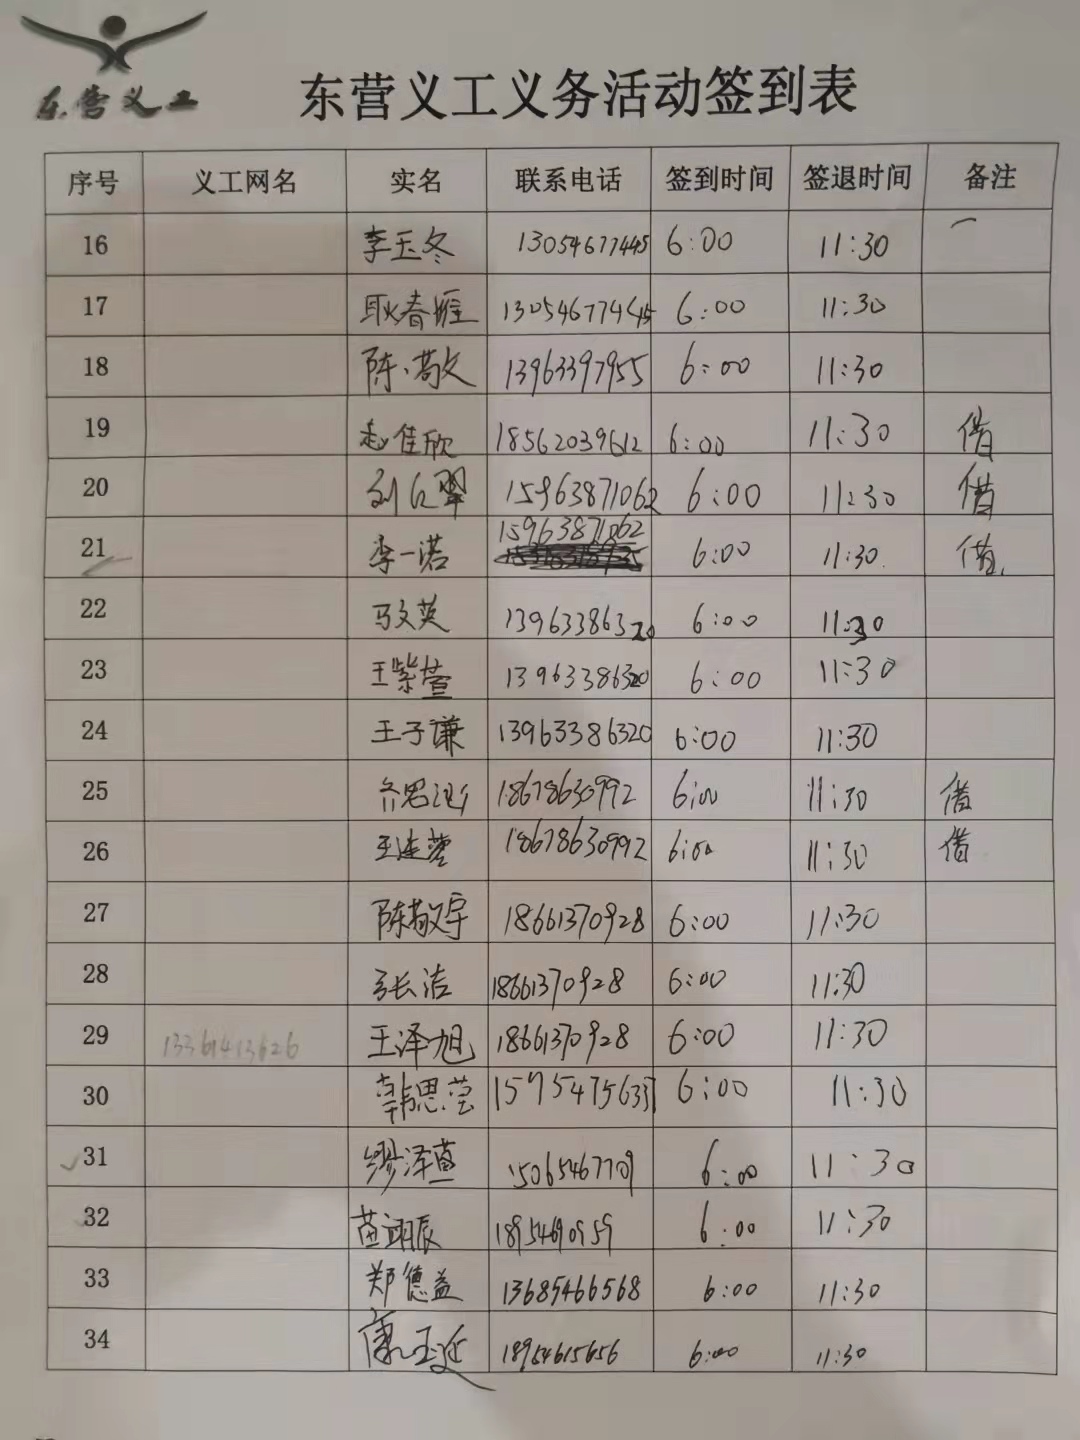 东营义工
东营义工义务活动签到表
序号 义工网名 实名 联系电话 签到时间 签退时间 备注
16 李玉冬 13054677445 6:00 11:30
17 耿春雅 13054677445 6:00 11:30
18 陈敬文 13963397955 6:00 11:30
19 赵佳欣 18562039612 6:00 11:30 借
20 刘 翠 15963871062 6:00 11:30 借
21 李一诺 15963871062 6:00 11:30 借
22 马文英 13963386320 6:00 11:30
23 王紫萱 13963386320 6:00 11:30
24 王子谦 13963386320 6:00 11:30
25 齐思 18678630992 6:00 11:30 借
26 王连蓉 18678630992 6:00 11:30 借
27 陈敬宇 18661370928 6:00 11:30
28 张洁 18661370928 6:00 11:30
29 13361413626 王泽旭 18661370928 6:00 11:30
30 韩思莹 15954756337 6:00 11:30
31 缪泽萱 15065467709 6:00 11:30
32 苗翊辰 18954690959 6:00 11:30
33 郑德益 13685466568 6:00 11:30
34 康玉延 18954615656 6:00 11:30